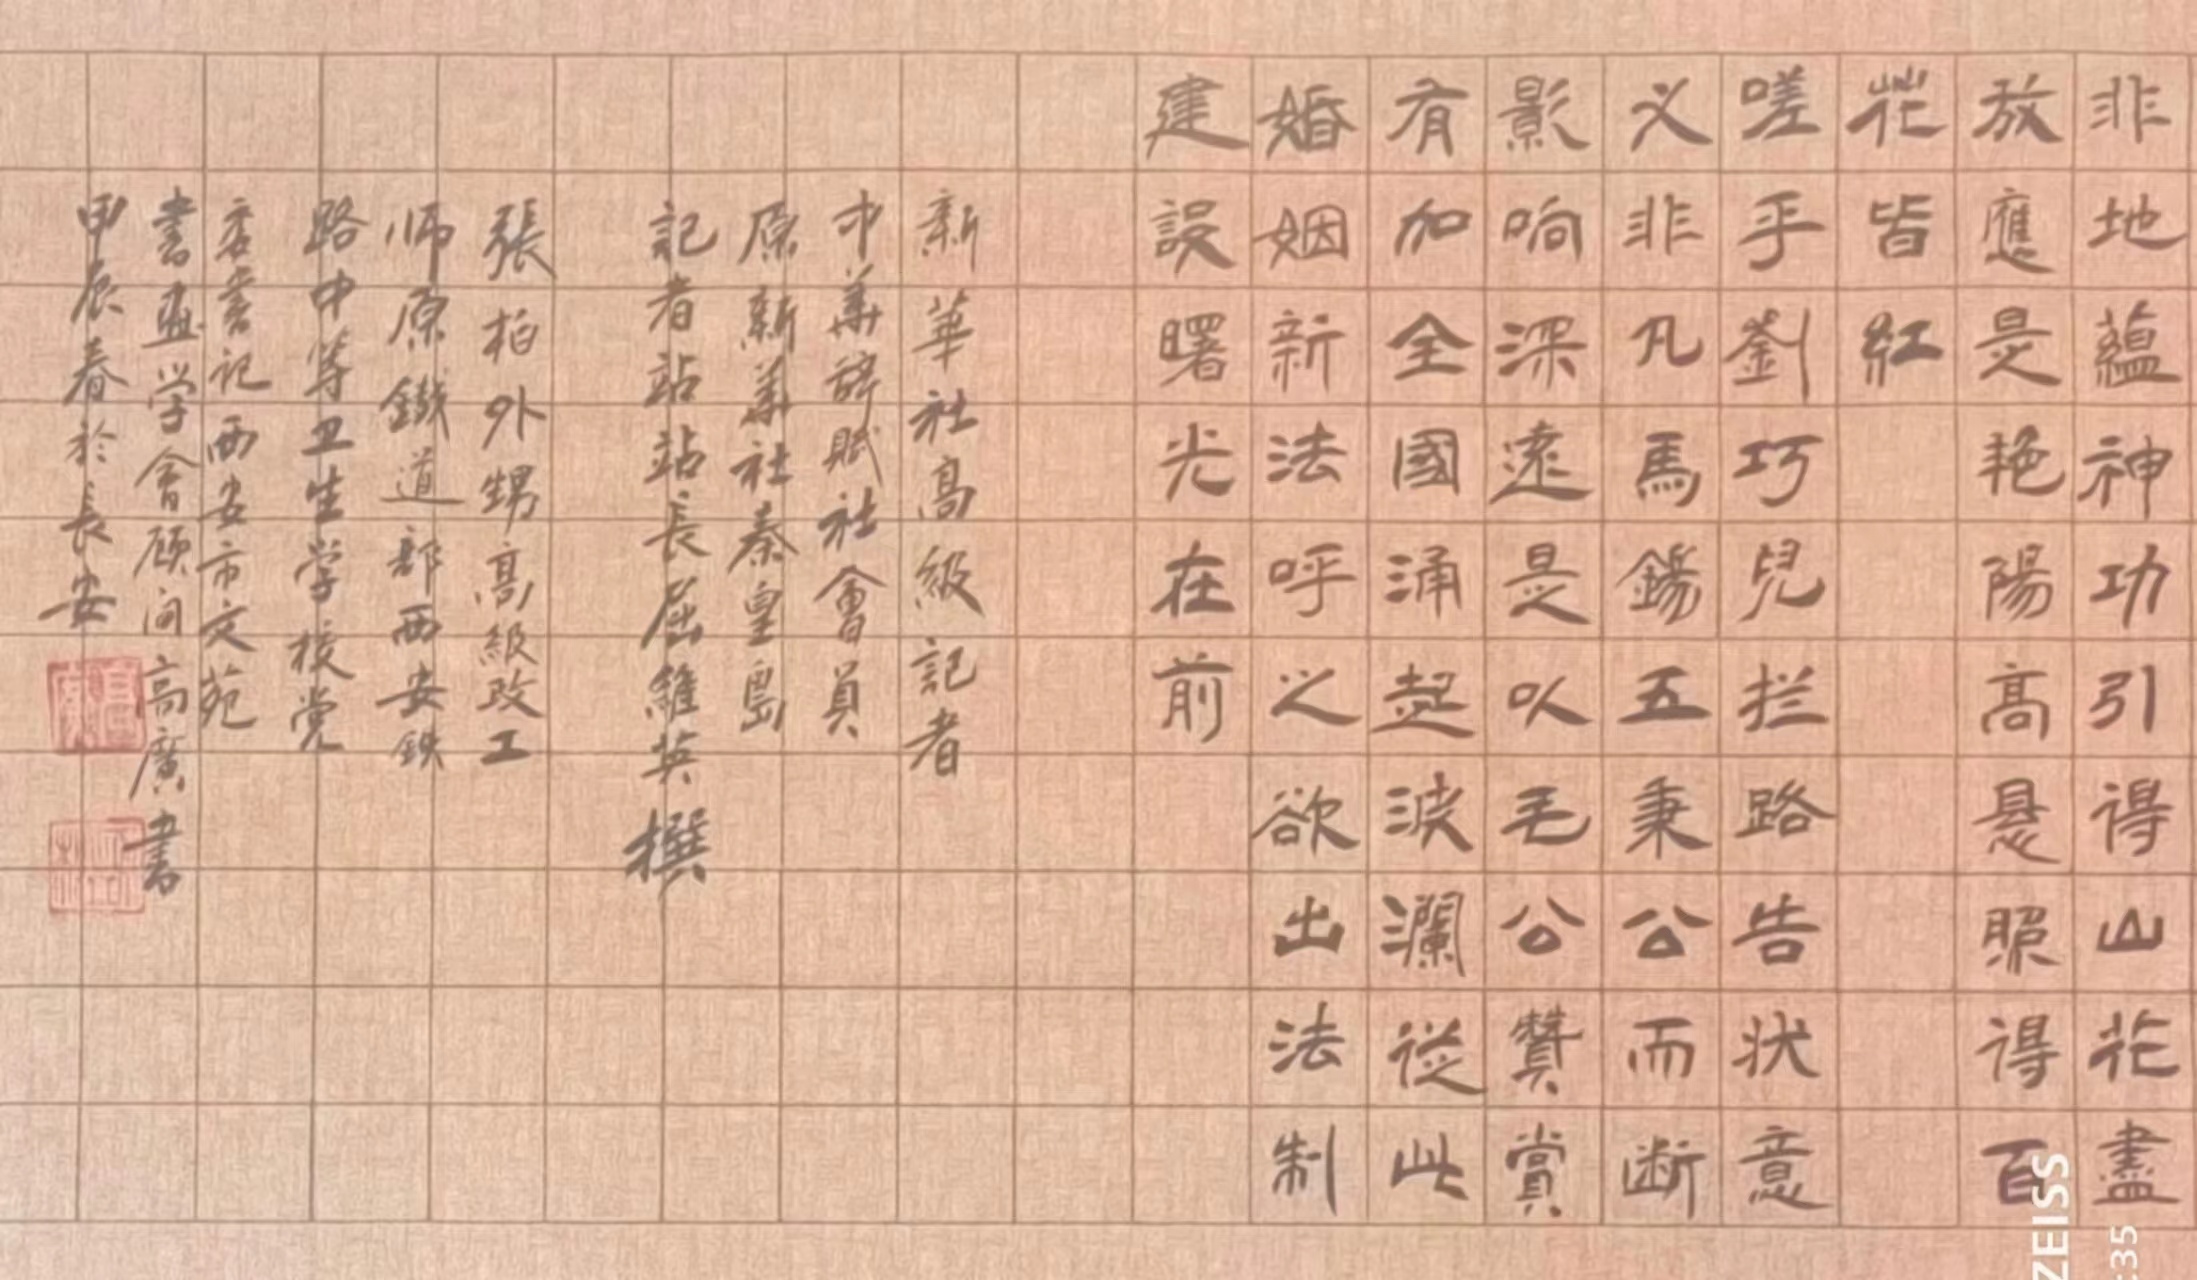 非地蘊神功引得山花盡
放應是艳陽高悬照得百
花皆紅
嗟乎劉巧兒拦路告状意
义非凡馬錫五秉公而断
影响深遠是以毛公贊賞
有加全國涌起波瀾從此
婚姻新法呼之欲出法制
建設曙光在前
新華社高級記者
中華辞賦社會員
原新華社秦皇島
記者站站長屈維英撰
張柏外甥高級政工
师原鐵道部西安铁
路中等卫生学校党
委書记西安市文苑
書画学會顾问高廣書
甲辰春於長安
ZEISS
:35